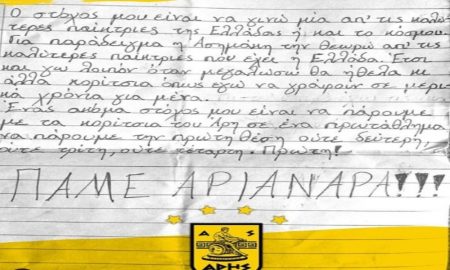 Ο στόχος μου είναι να γίνω μία απ' τις καλύ-
τερες παίκτριες της Ελλάδας ή και το κόσμου.
Για παράδειγμα η Ασημάκη την θεωρώ απ' τις
καλύτερες παίκτριες που έχει η Ελλάδα. Έτσι
και γω λοιπόν όταν μεγαλώσω θα ήθελα κι
άλλα κορίτσια όπως εγώ να γράφουν σε μερι-
κά χρόνια για μένα.
Ένας ακόμα στόχος μου είναι να πάρουμε
με τα κορίτσια του Άρη σε ένα πρωτάθλημα
να πάρουμε την πρώτη θέση ούτε δεύτερη,
ούτε τρίτη, ούτε τέταρτη. Πρώτη!
ΠΑΜΕ ΑΡΙΑΝΑΡΑ!!!
Α Σ
ΑΡΗΣ